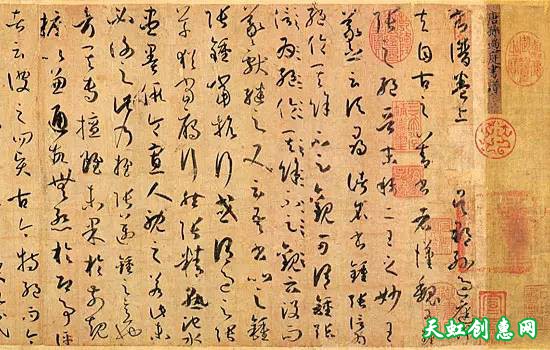 唐孫過庭書譜
書譜卷上 吳郡孫過庭撰
夫自古之善書者漢魏有鍾
張之絕晉末稱二王之妙王
羲之云頃尋諸名書鍾張信為
絕倫其餘不足觀可謂鍾張
信為絕倫其餘不足觀云沒而
羲獻繼之又云吾書比之鍾
張鍾當抗行或謂過之張
草猶當雁行然張精熟池水
盡墨假令寡人耽之若此未
必謝之此乃推張邁鍾之意也
考其專擅雖未果於前規
摭以兼通故無慙於即事評
者云彼之四賢古今特絕而今
天虹创意网